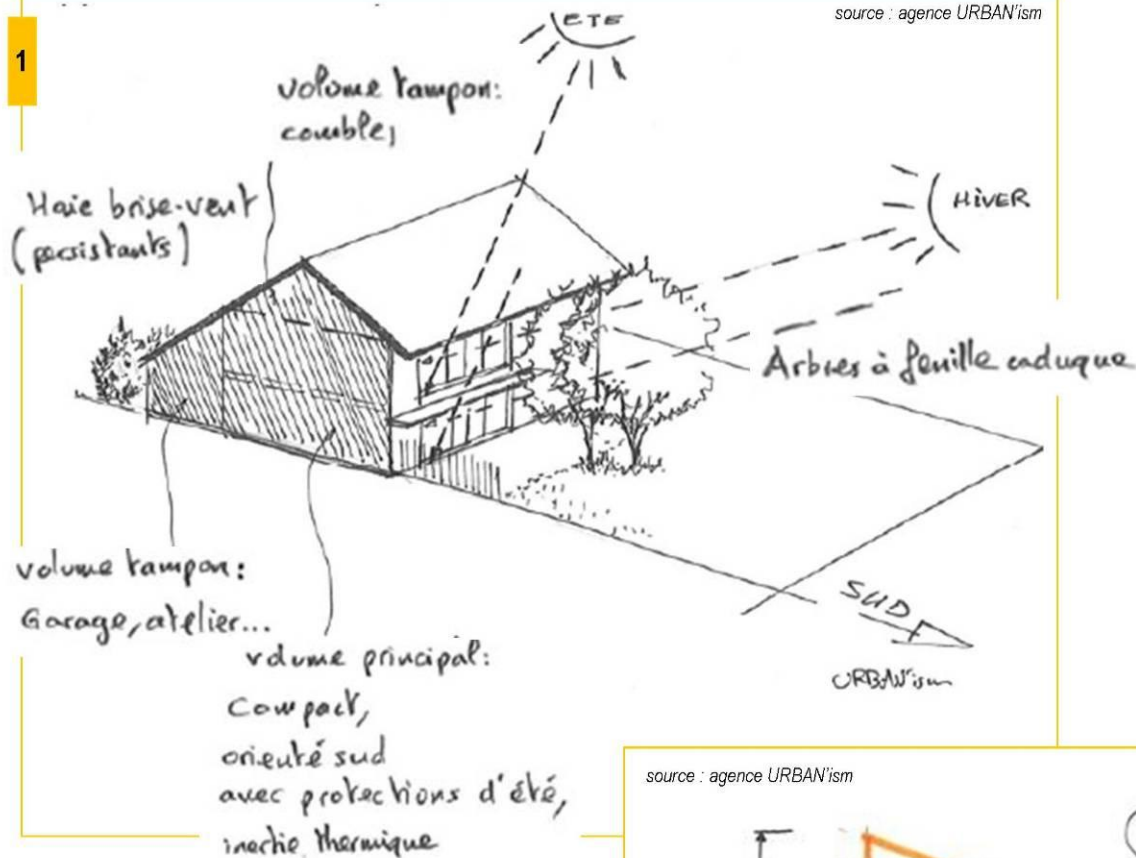 source : agence URBAN'ism
1
ÉTÉ
volume tampon:
combles
Haie brise-vent
(persistants)
HiVER
Arbres à feuille caduque
volume tampon:
Garage, atelier...
SUD
URBAN'ism
volume principal:
Compact,
orienté sud
avec protections d'été,
inertie thermique
source : agence URBAN'ism